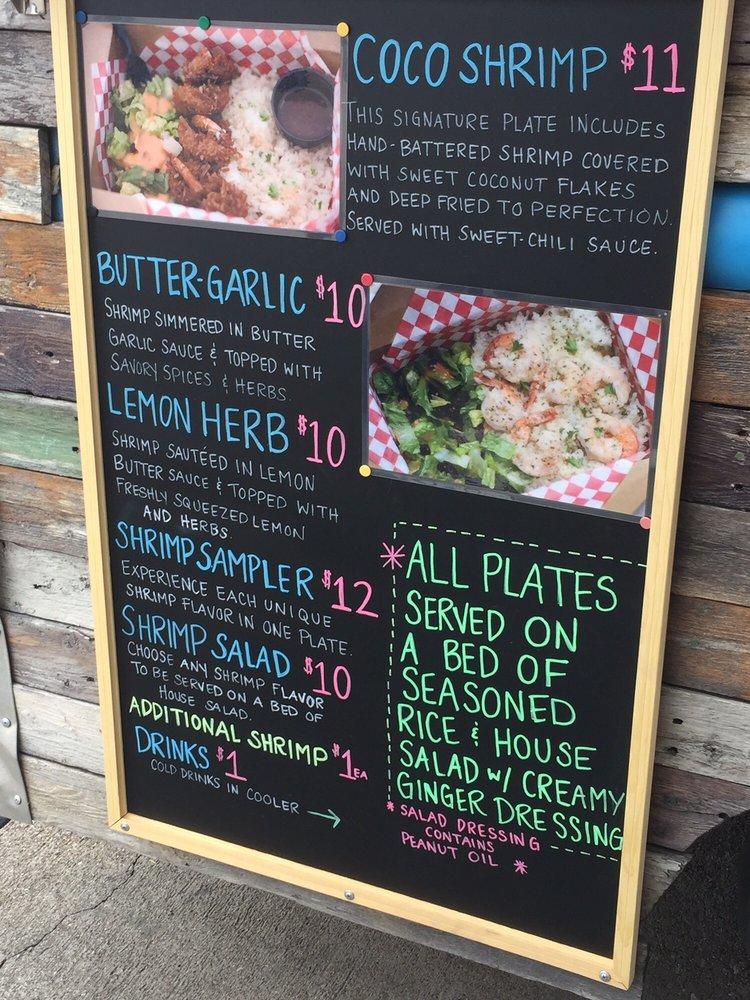 COCO SHRIMP $11
THIS SIGNATURE PLATE INCLUDES
HAND-BATTERED SHRIMP COVERED
WITH SWEET COCONUT FLAKES
AND DEEP FRIED TO PERFECTION.
SERVED WITH SWEET-CHILI SAUCE.
BUTTER-GARLIC $10
SHRIMP SIMMERED IN BUTTER
GARLIC SAUCE & TOPPED WITH
SAVORY SPICES & HERBS.
LEMON HERB $10
SHRIMP SAUTÉED IN LEMON
BUTTER SAUCE & TOPPED WITH
FRESHLY SQUEEZED LEMON
AND HERBS.
SHRIMP SAMPLER $12
EXPERIENCE EACH UNIQUE
SHRIMP FLAVOR IN ONE PLATE.
SHRIMP SALAD $10
CHOOSE ANY SHRIMP FLAVOR
TO BE SERVED ON A BED OF
HOUSE SALAD.
ADDITIONAL SHRIMP $1 EA
DRINKS $1
COLD DRINKS IN COOLER →
*ALL PLATES
SERVED ON
A BED OF
SEASONED
RICE & HOUSE
SALAD W/ CREAMY
GINGER DRESSING
*SALAD DRESSING
CONTAINS
PEANUT OIL *